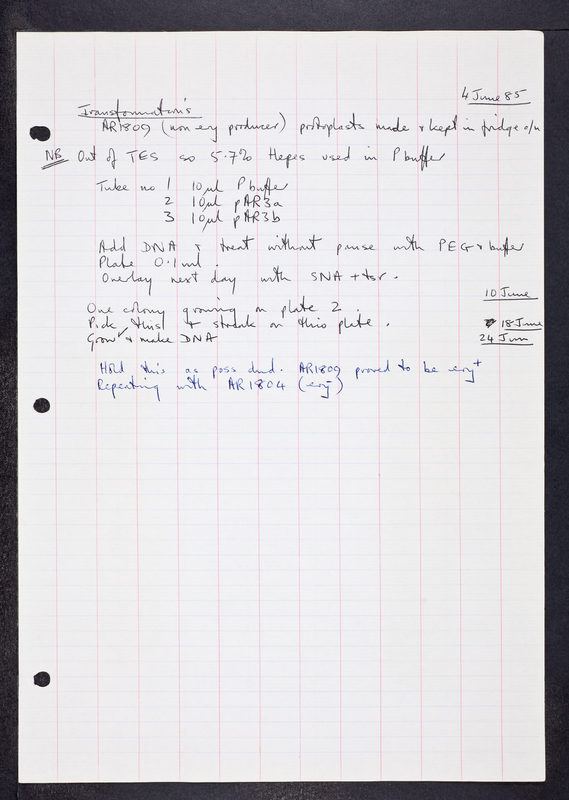 4 June 85
Transformations
AR1809 (non ery producer) protoplasts made & kept in fridge o/n
NB Out of TES so 5.7% Hepes used in P buffer
Tube no 1 10µl P buffer
2 10µl pAR3a
3 10µl pAR3b
Add DNA & treat without pause with PEG & buffer
Plate 0.1ml.
Overlay next day with SNA + tsr.
10 June
One colony growing on plate 2.
Pick this & streak on thio plate. 18 June
Grow & make DNA 24 Jun
Hold this as poss dud. AR1809 proved to be ery+
Repeating with AR1804 (ery-)